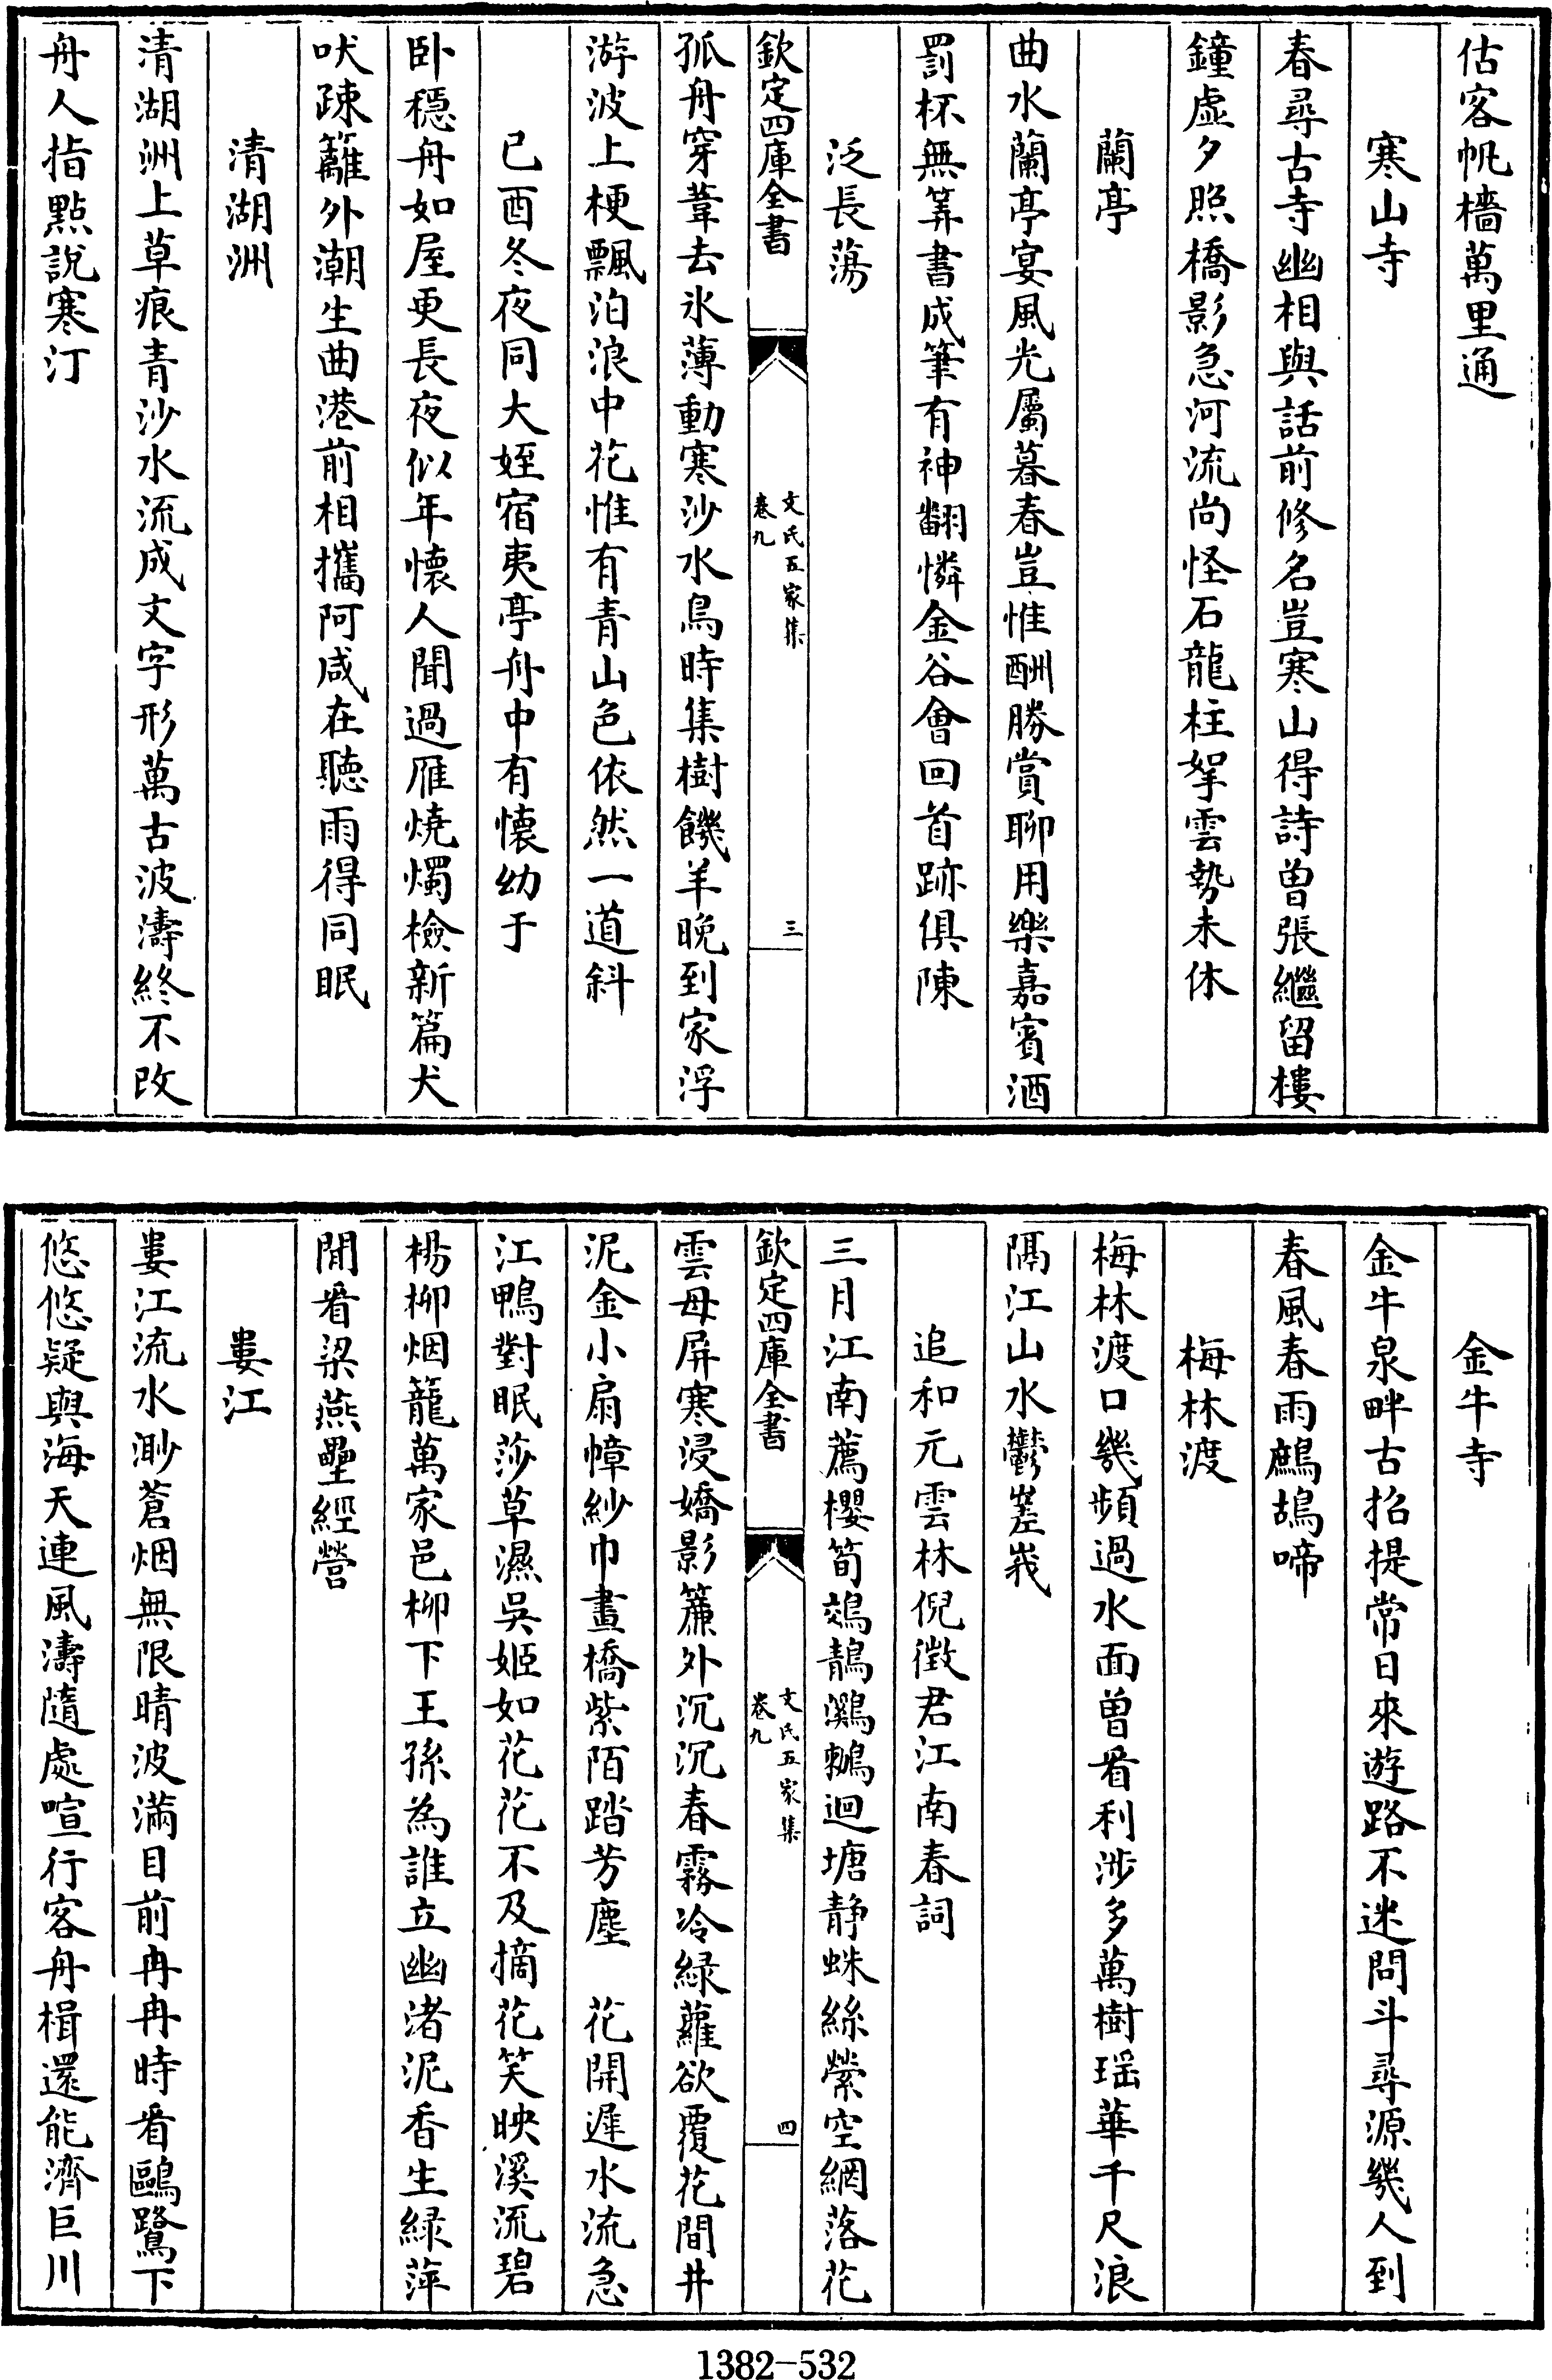 估客帆檣萬里通
寒山寺
春尋古寺幽相與話前修名豈寒山得詩曽張繼留樓
鐘虛夕照橋影急河流尚怪石龍柱拏雲勢未休
蘭亭
曲水蘭亭宴風光屬暮春豈惟酬勝賞聊用樂嘉賓酒
罰杯無筭書成筆有神翻憐金谷會回首跡俱陳
泛長蕩
欽定四庫全書
文氏五家集
卷九
三
孤舟穿葦去氷薄動寒沙水鳥時集樹饑羊晩到家浮
游波上梗飄泊浪中花惟有青山色依然一道斜
已酉冬夜同大姪宿夷亭舟中有懐幼于
卧穩舟如屋更長夜似年懐人聞過雁燒燭檢新篇犬
吠疎籬外潮生曲港前相攜阿咸在聽雨得同眠
清湖洲
清湖洲上草痕青沙水流成文字形萬古波濤終不改
舟人指點說寒汀
金牛寺
金牛泉畔古招提常日來遊路不迷問斗尋源幾人到
春風春雨鷓鴣啼
梅林渡
梅林渡口幾頻過水面曽看利涉多萬樹瑶華千尺浪
隔江山水鬱嵳峩
追和元雲林倪徴君江南春詞
三月江南薦櫻筍鵁鶄鸂鶒迴塘静蛛絲縈空網落花
欽定四庫全書
文氏五家集
卷九
四
雲母屏寒浸嬌影簾外沉沉春霧冷緑蘿欲覆花間井
泥金小扇幛紗巾畫橋紫陌踏芳塵　花開遲水流急
江鴨對眠莎草濕吳姬如花花不及摘花笑映溪流碧
楊柳烟籠萬家邑柳下王孫為誰立幽渚泥香生緑萍
閒看梁燕壘經營
婁江
婁江流水渺蒼烟無限晴波滿目前冉冉時看鷗鷺下
悠悠疑與海天連風濤隨處喧行客舟楫還能濟巨川
1382-532